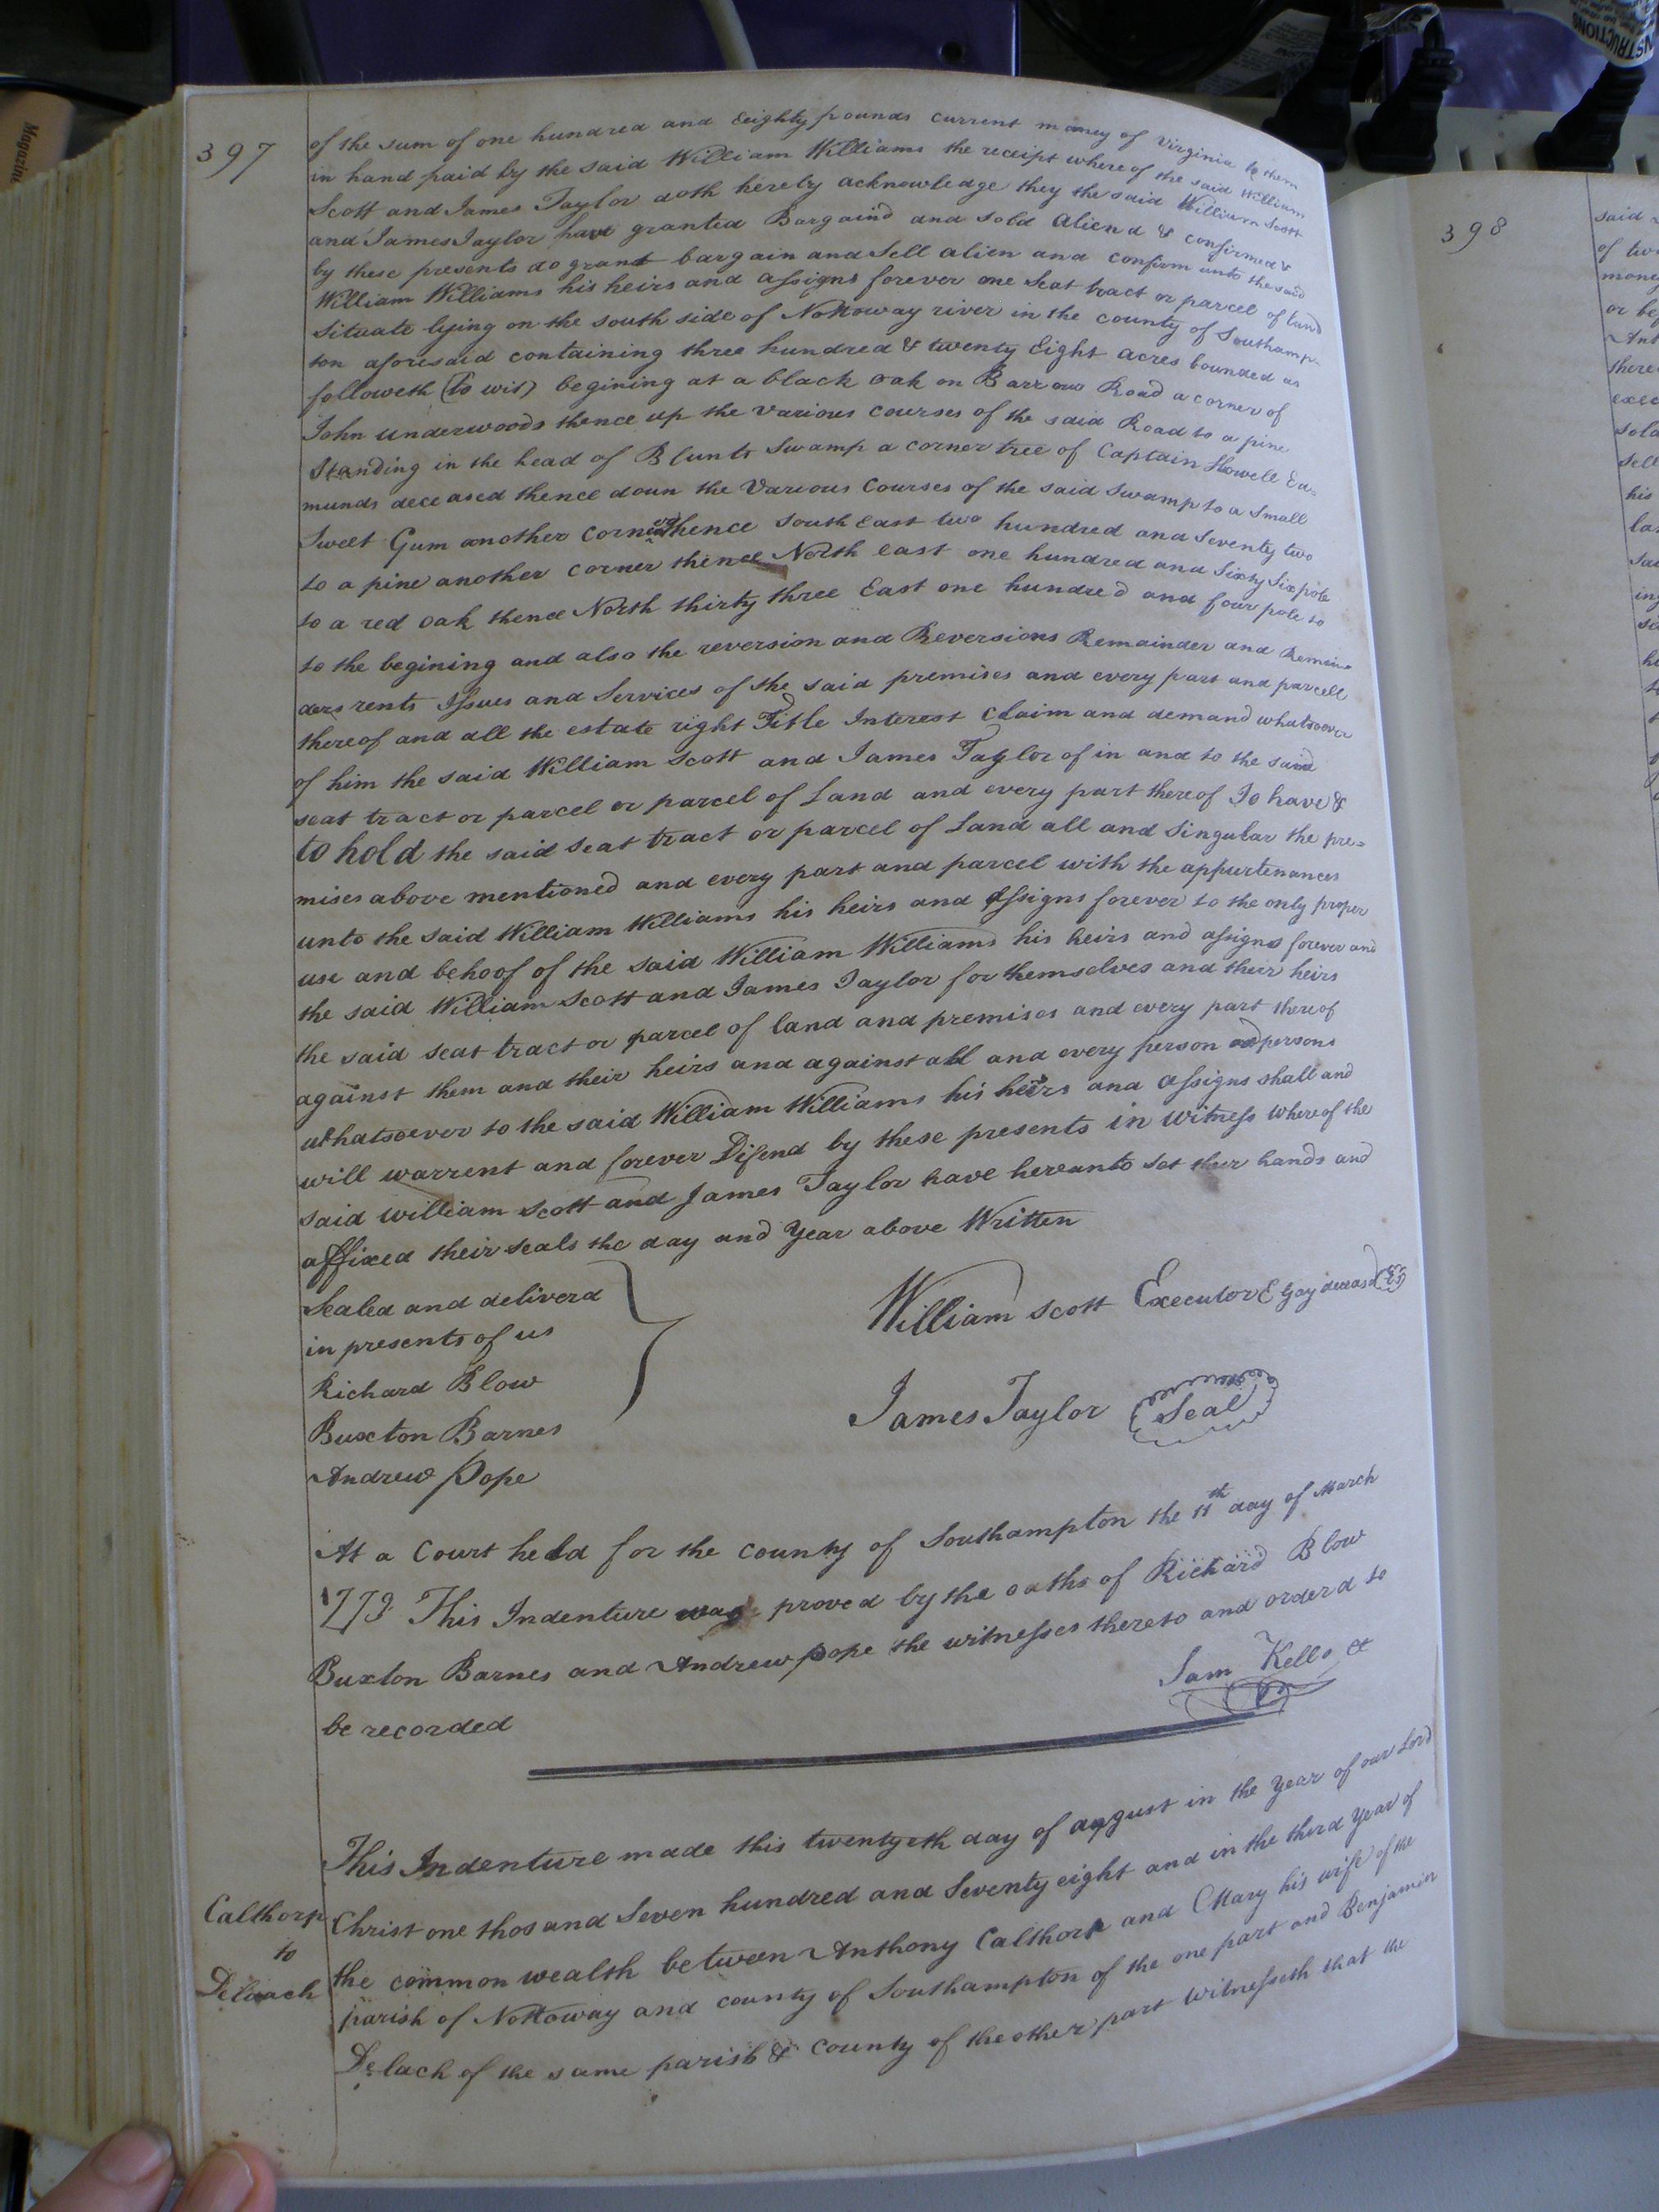 397
of the sum of one hundred and Eeighty pounds current money of Virginia to them
in hand paid by the said William Williams the receipt whereof the said William
Scott and James Taylor doth hereby acknowledge they the said William Scott
and James Taylor have granted Bargaind and sold aliend & confirmed &
by these presents do grant bargain and Sell alien and confirm unto the said
William Williams his heirs and assigns forever one Seat tract or parcel of Land
Situate lying on the south side of Nottoway river in the county of Southamp-
ton aforesaid containing three hundred & twenty Eight acres bounded as
followeth (to wit) begining at a black oak on Barrow Road a corner of
John underwoods thence up the various courses of the said Road to a pine
Standing in the head of Blunts Swamp a corner tree of Captain Howell Ed=
munds deceased thence down the Various Courses of the said Swamp to a Small
Sweet Gum another corner thence South East two hundred and Seventy two
to a pine another corner thence North east one hundred and Sixty Six pole
to a red oak thence North thirty three East one hundred and four pole to
to the begining and also the reversion and Reversions Remainder and Remain=
ders rents Issues and Services of the said premises and every part and parcell
thereof and all the estate right Title Interest Claim and demand whatsoever
of him the said William Scott and James Taylor of in and to the said
seat tract or parcel or parcel of Land and every part thereof To have &
to hold the said Seat tract or parcel of Land all and Singular the pre=
mises above mentioned and every part and parcel with the appurtenances
unto the said William Williams his heirs and Assigns forever to the only proper
use and behoof of the said William Williams his heirs and assigns forever and
the said William Scott and James Taylor for themselves and their heirs
the said seat tract or parcel of land and premises and every part thereof
against them and their heirs and against all and every person persons
whatsoever to the said William Williams his heirs and Assigns shall and
will warrent and forever Difend by these presents in Witness Whereof the
said William Scott and James Taylor have hereunto set their hands and
affixed their seals the day and Year above Written
Sealed and deliverd
in presents of us
Richard Blow
Buxton Barnes
Andrew Pope
William Scott Executor E Gay deceasd
James Taylor Seal
At a Court held for the county of Southampton the 11th day of March
1779 This Indenture was proved by the oaths of Richard Blow
Buxton Barnes and Andrew pope the witnesses thereto and orderd to
be recorded
Sam Kello
This Indenture made this twentyeth day of august in the Year of our Lord
Christ one thosand Seven hundred and Seventy eight and in the third Year of
the common wealth between Anthony Calthorp and Mary his wife of the
parish of Nottoway and county of Southampton of the one part and Benjamin
Delach of the same parish & County of the other part Witnesseth that the
Calthorp
to
Deloach
398
said
of tw
money
or be
Ant
there
exec
sold
Sell
his